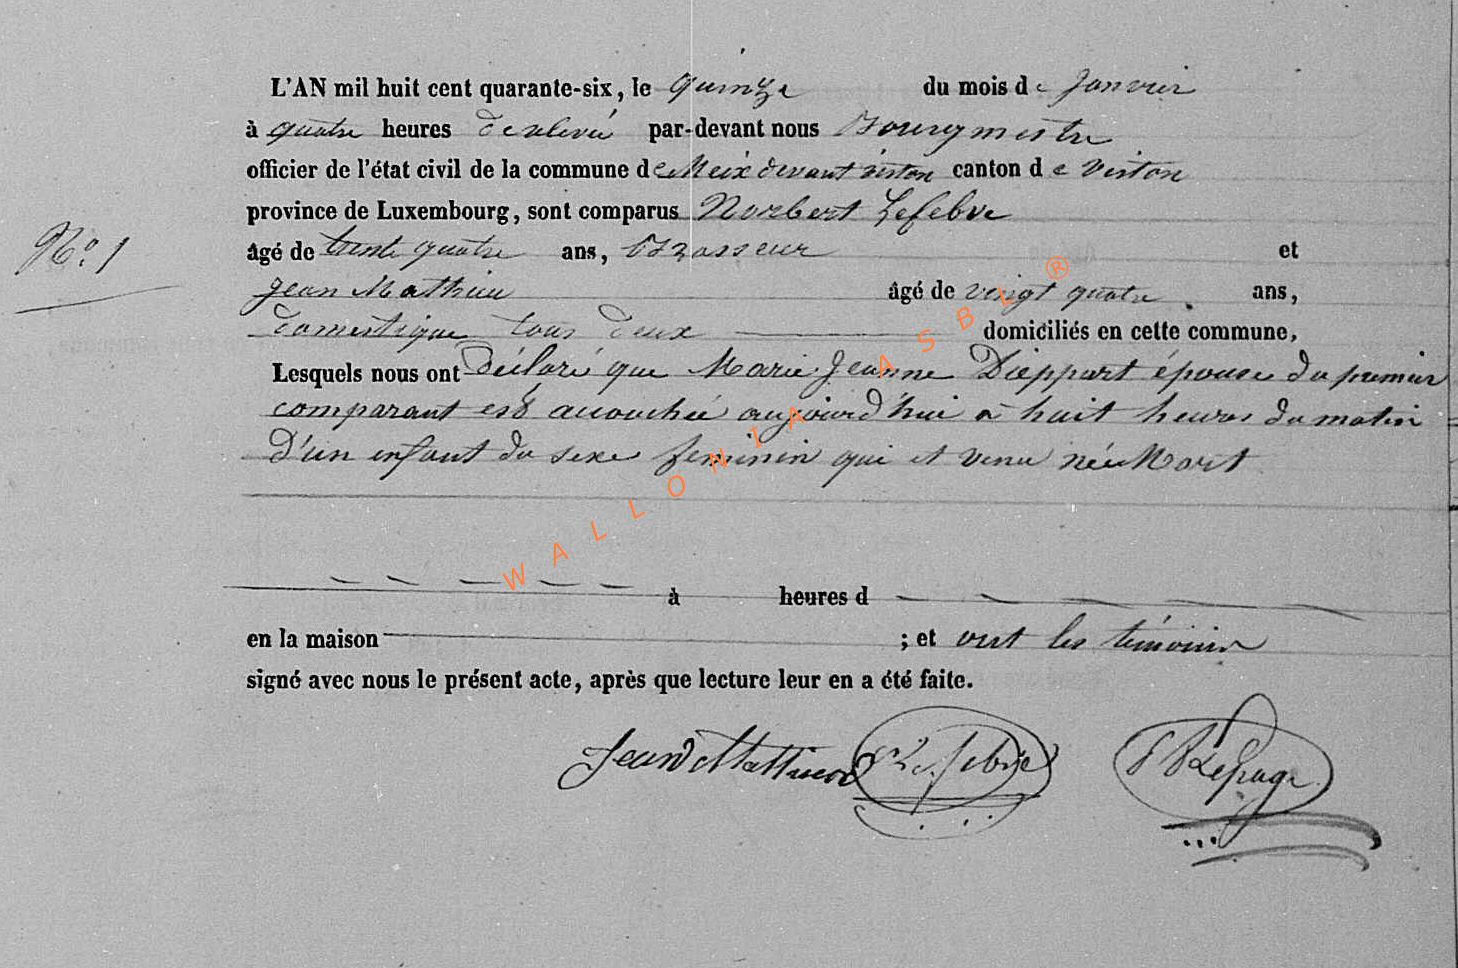 L'AN mil huit cent quarante-six, le quinze du mois de Janvier
à quatre heures de relevée par-devant nous Bourgmestre
officier de l'état civil de la commune de Meix devant virton canton de Virton
province de Luxembourg, sont comparus Norbert Lefebvre
N.º 1 âgé de trente quatre ans, Brasseur et
Jean Mathieu âgé de vingt quatre ans,
domestique tous deux domiciliés en cette commune,
Lesquels nous ont déclaré que Marie Jeanne Dieppart épouse du premier
comparant est accouchée aujourd'hui à huit heures du matin
D'un enfant du sexe feminin qui et venu née Mort
à heures d
en la maison ; et ont les témoins
signé avec nous le présent acte, après que lecture leur en a été faite.
Jean Mathieu Lefebvre Lepage
WALLONIA ASBL ®